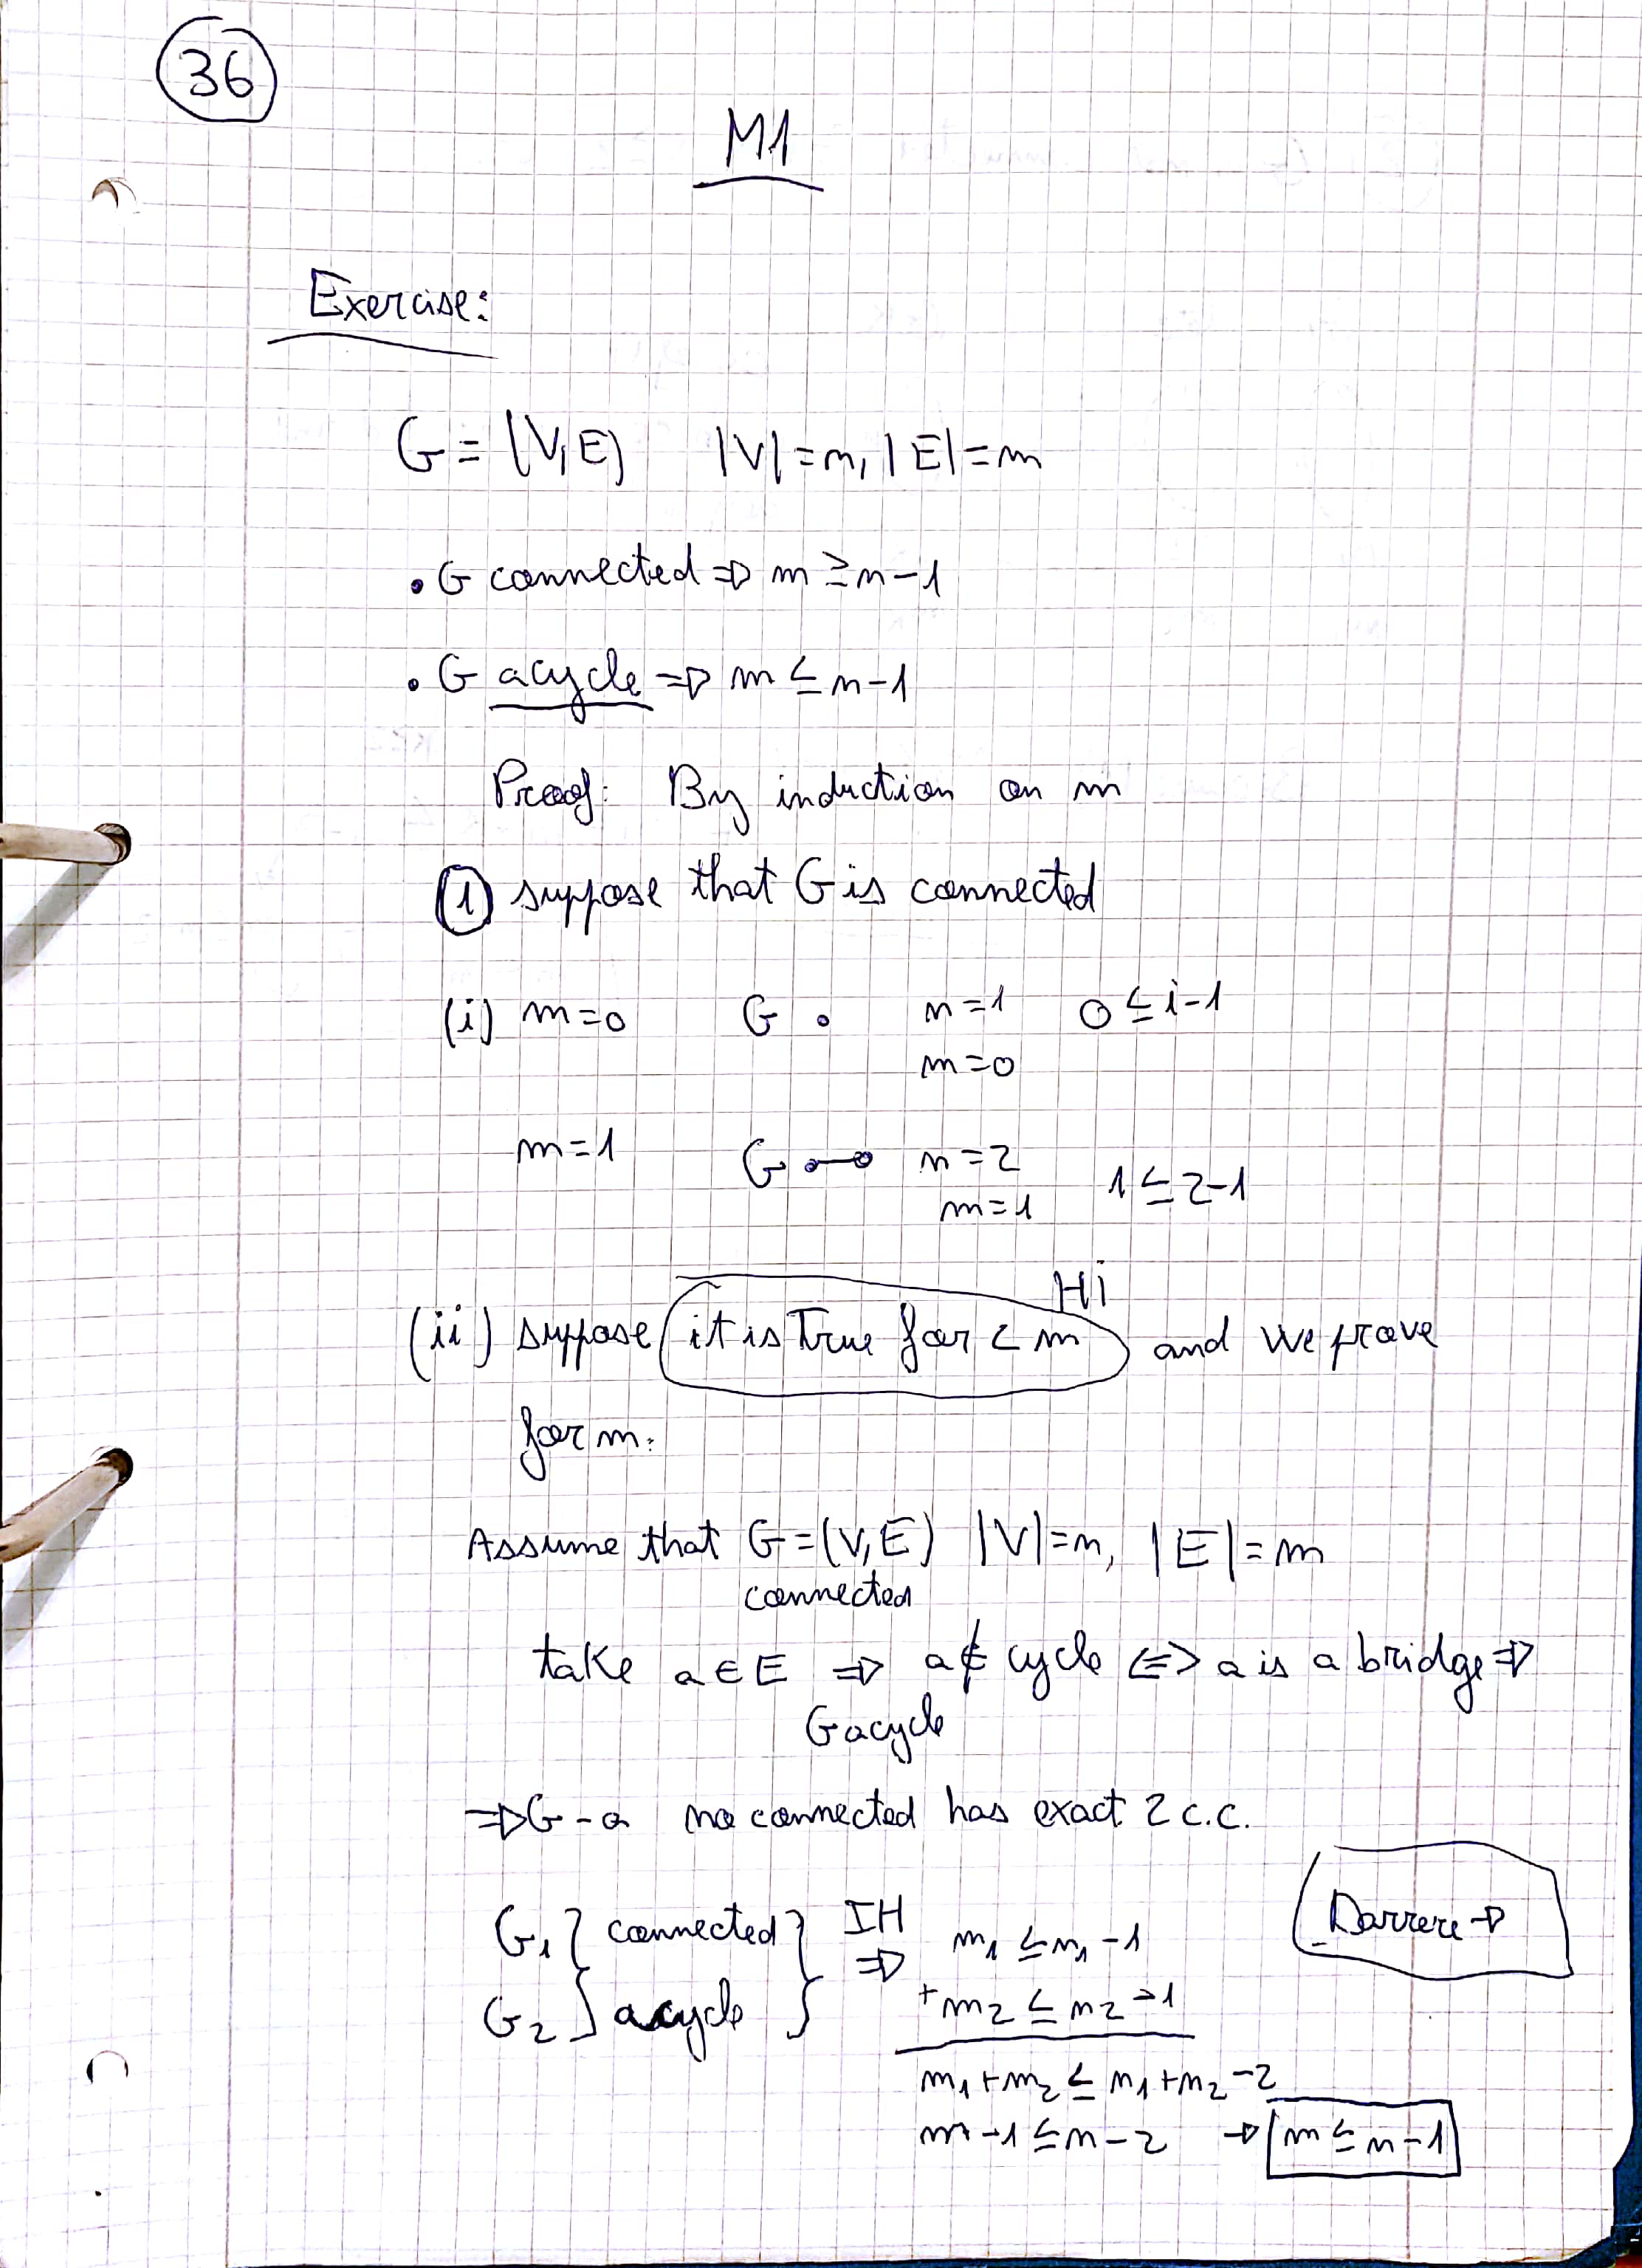 36
M1
Exercise:
G = (V,E) |V| = n, |E| = m
• G connected ⇒ m ≥ n-1
• G acycle ⇒ m ≤ n-1
Proof: By induction on m
① suppose that G is connected
(i) m=0 G • n=1 0 ≤ i-1
m=0
m=1 G n=2 1 ≤ 2-1
m=1
Hi
(ii) suppose it is True for < m and we prove
for m.
Assume that G=(V,E) |V|=n, |E|=m
connected
take a ∈ E ⇒ a ∉ cycle <=> a is a bridge ⇒
G acycle
⇒ G-a no connected has exact 2 c.c.
Darrere →
G₁ } connected } IH ⇒ m₁ ≤ n₁ -1
G₂ } acycle } + m₂ ≤ n₂ -1
m₁+m₂ ≤ n₁+n₂ -2
m-1 ≤ n-2 → m ≤ n-1